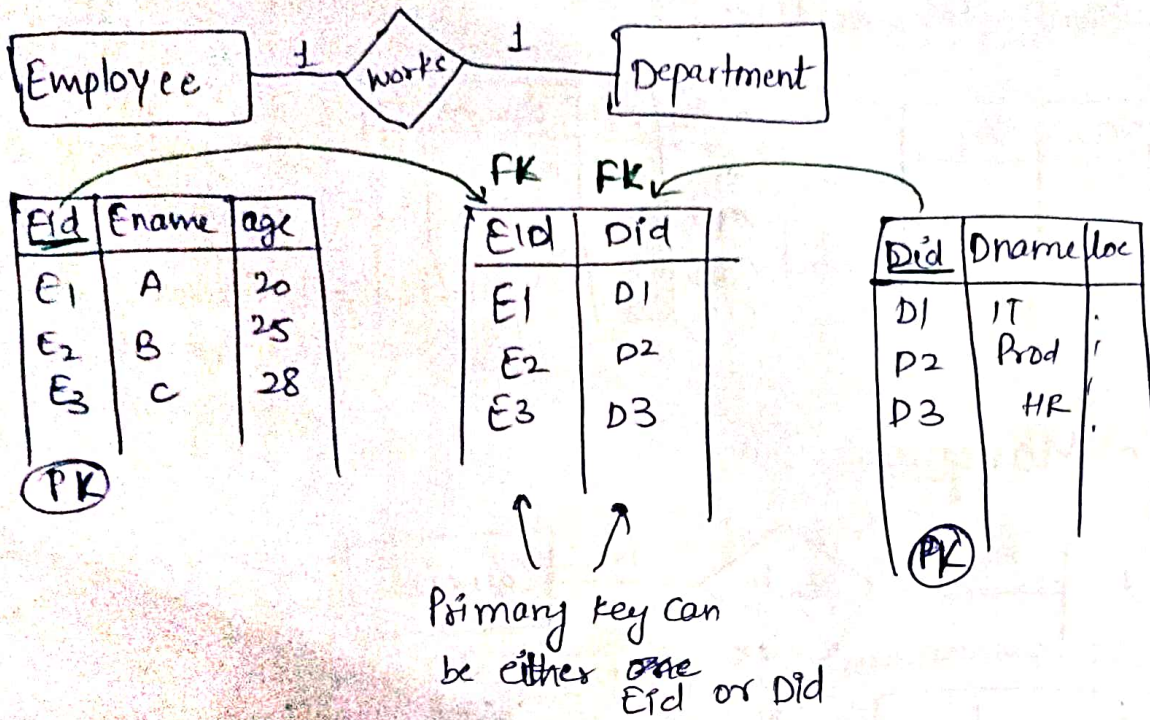 Employee 1 works 1 Department
FK FK
Eid Ename age
E1 A 20
E2 B 25
E3 C 28
PK
EID Did
E1 D1
E2 D2
E3 D3
Did Dname loc
D1 IT
D2 Prod
D3 HR
PK
Primary key can
be either
Eid or Did